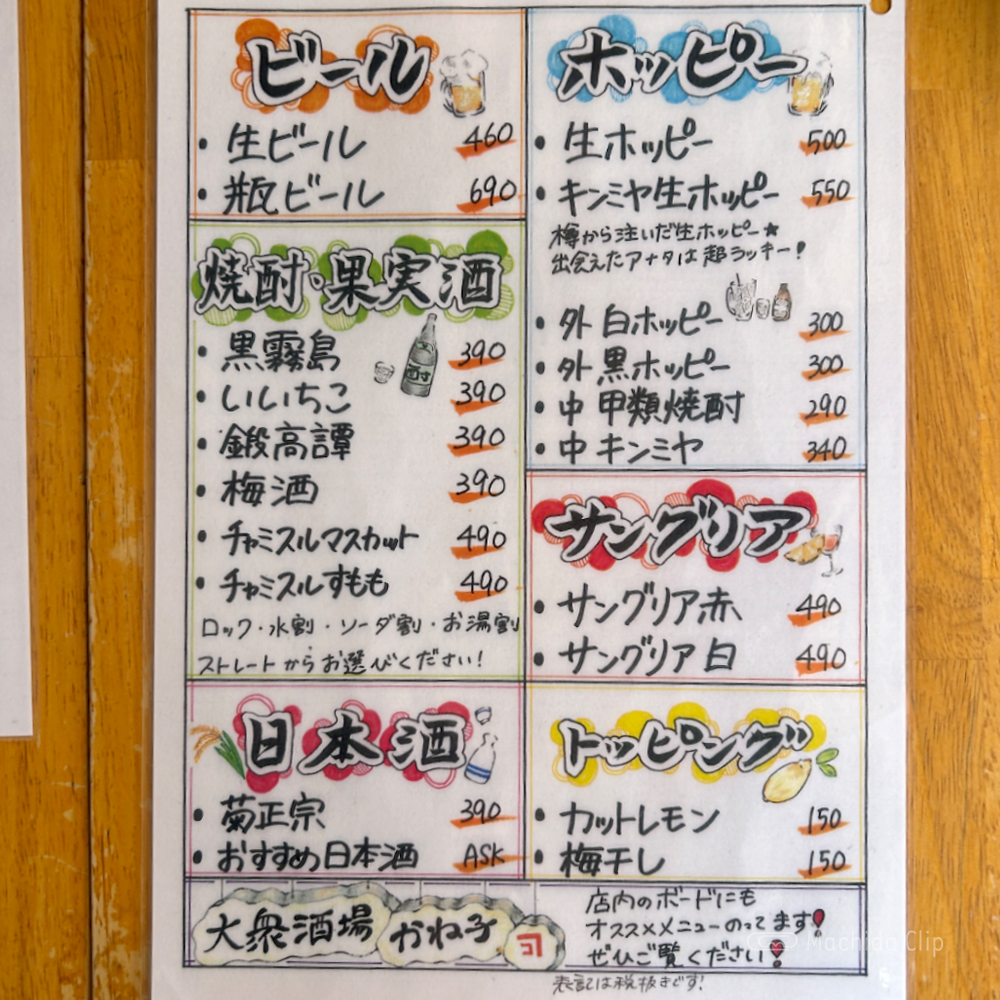 ビール
・生ビール 460
・瓶ビール 690
焼酎・果実酒
・黒霧島 390
・いいちこ 390
・鍛高譚 390
・梅酒 390
・チャミスルマスカット 490
・チャミスルすもも 490
ロック・水割・ソーダ割・お湯割
ストレートからお選びください!
日本酒
・菊正宗 390
・おすすめ日本酒 ASK
ホッピー
・生ホッピー 500
・キンミヤ生ホッピー 550
樽から注いだ生ホッピー★
出会えたアナタは超ラッキー!
・外 白ホッピー 300
・外 黒ホッピー 300
・中 甲類焼酎 290
・中 キンミヤ 340
サングリア
・サングリア赤 490
・サングリア白 490
トッピング
・カットレモン 150
・梅干し 150
大衆酒場 かね子
店内のボードにも
オススメメニューのってます!
ぜひご覧ください!
表記は税抜きです!
Machida Clip